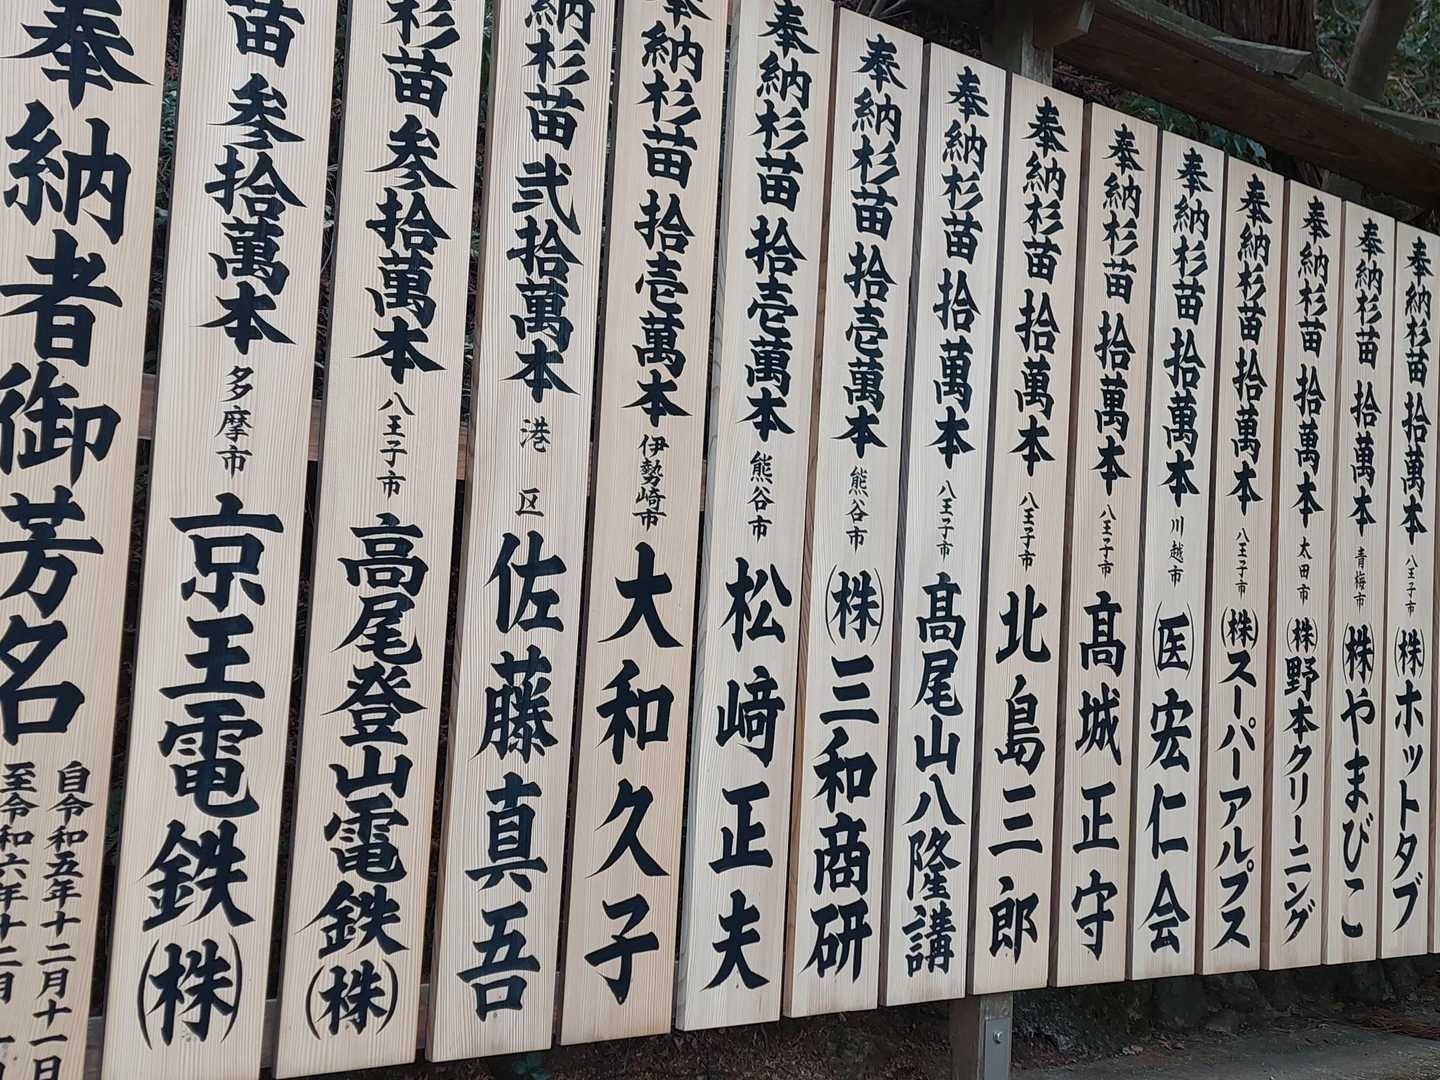 奉納者御芳名
自令和五年十二月十一日
至令和六年十二月
苗 参拾萬本 多摩市 京王電鉄(株)
杉苗 参拾萬本 八王子市 高尾登山電鉄(株)
納杉苗 弐拾萬本 港区 佐藤真吾
奉納杉苗 拾壱萬本 伊勢崎市 大和久子
奉納杉苗 拾壱萬本 熊谷市 松﨑正夫
奉納杉苗 拾壱萬本 熊谷市 (株)三和商研
奉納杉苗 拾萬本 八王子市 髙尾山八隆講
奉納杉苗 拾萬本 八王子市 北島三郎
奉納杉苗 拾萬本 八王子市 髙城正守
奉納杉苗 拾萬本 川越市 (医)宏仁会
奉納杉苗 拾萬本 八王子市 (株)スーパーアルプス
奉納杉苗 拾萬本 太田市 (株)野本クリーニング
奉納杉苗 拾萬本 青梅市 (株)やまびこ
奉納杉苗 拾萬本 八王子市 (株)ホットタブ